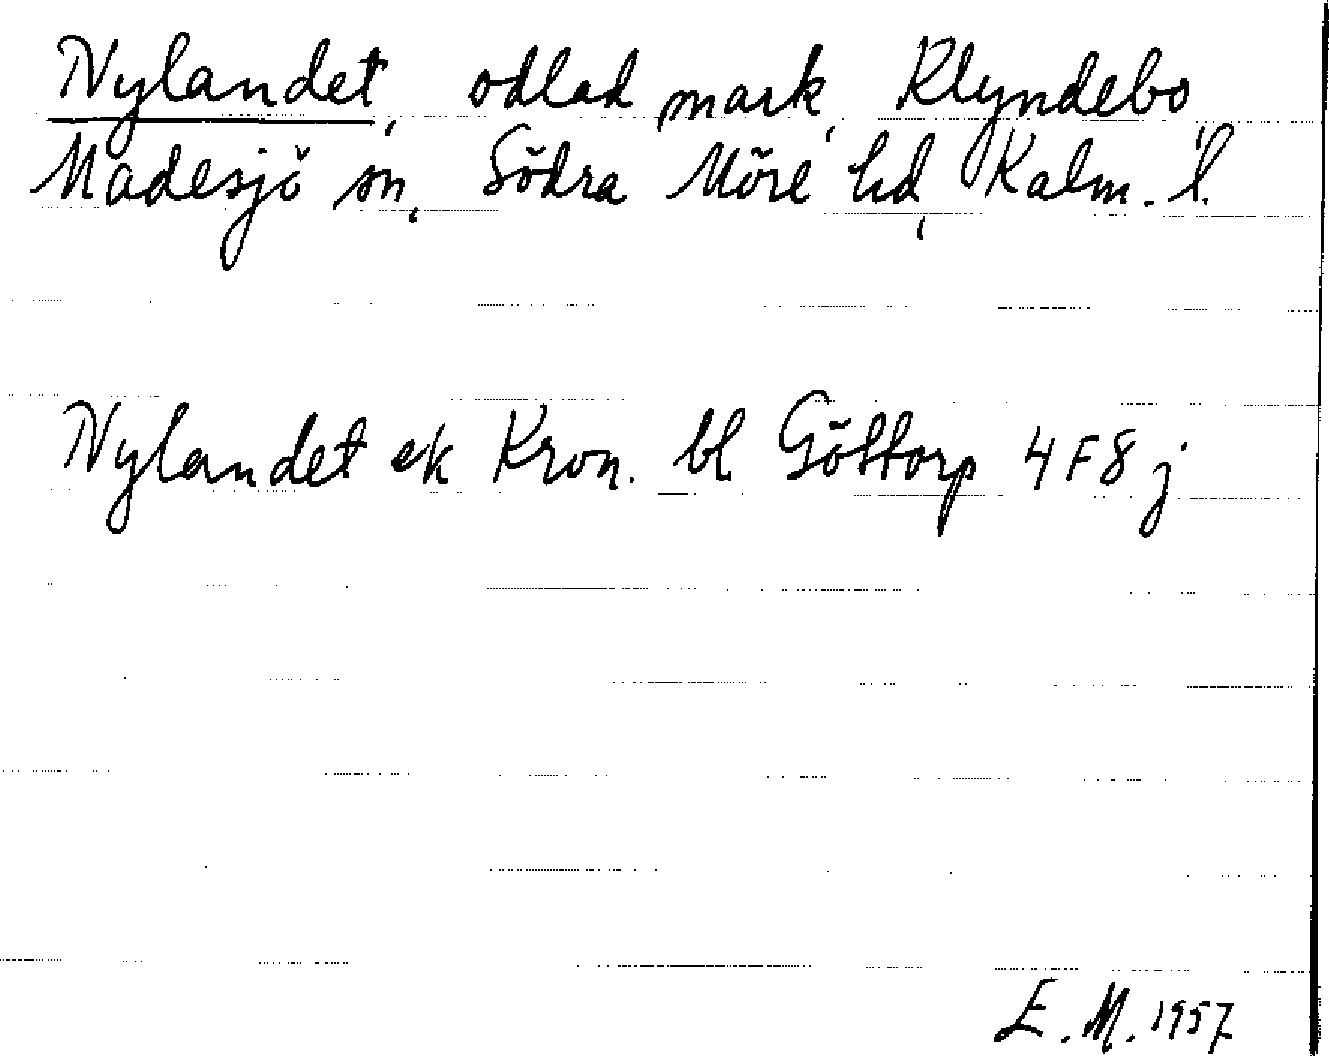 Nylandet, odlad mark, Klyndebo,
Madesjö sn, Södra Möre hd, Kalm. l.
Nylandet ek Kron. bl Göttorp 4 F 8 j
E. M. 1957